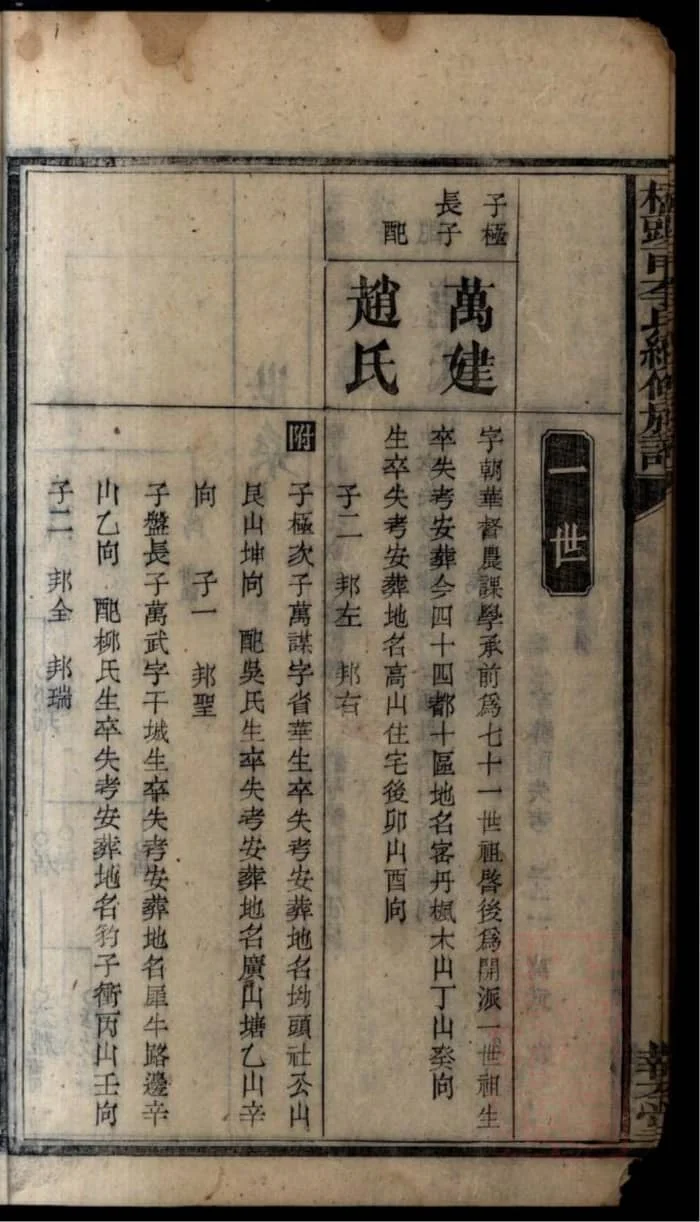 李氏續修族譜
一世
子極長子
萬建
字朝華督農課學承前爲七十一世祖啓後爲開派一世祖生
卒失考安葬今四十四都十區地名窑丹楓木山丁山癸向
配
趙氏
生卒失考安葬地名高山住宅後卯山酉向
子二 邦左 邦右
附 子極次子萬謀字省華生卒失考安葬地名坳頭社公山
艮山坤向 配吳氏生卒失考安葬地名廣山塘乙山辛
向 子一 邦聖
子盤長子萬武字干城生卒失考安葬地名犀牛路邊辛
山乙向 配柳氏生卒失考安葬地名豹子衝丙山壬向
子二 邦全 邦瑞